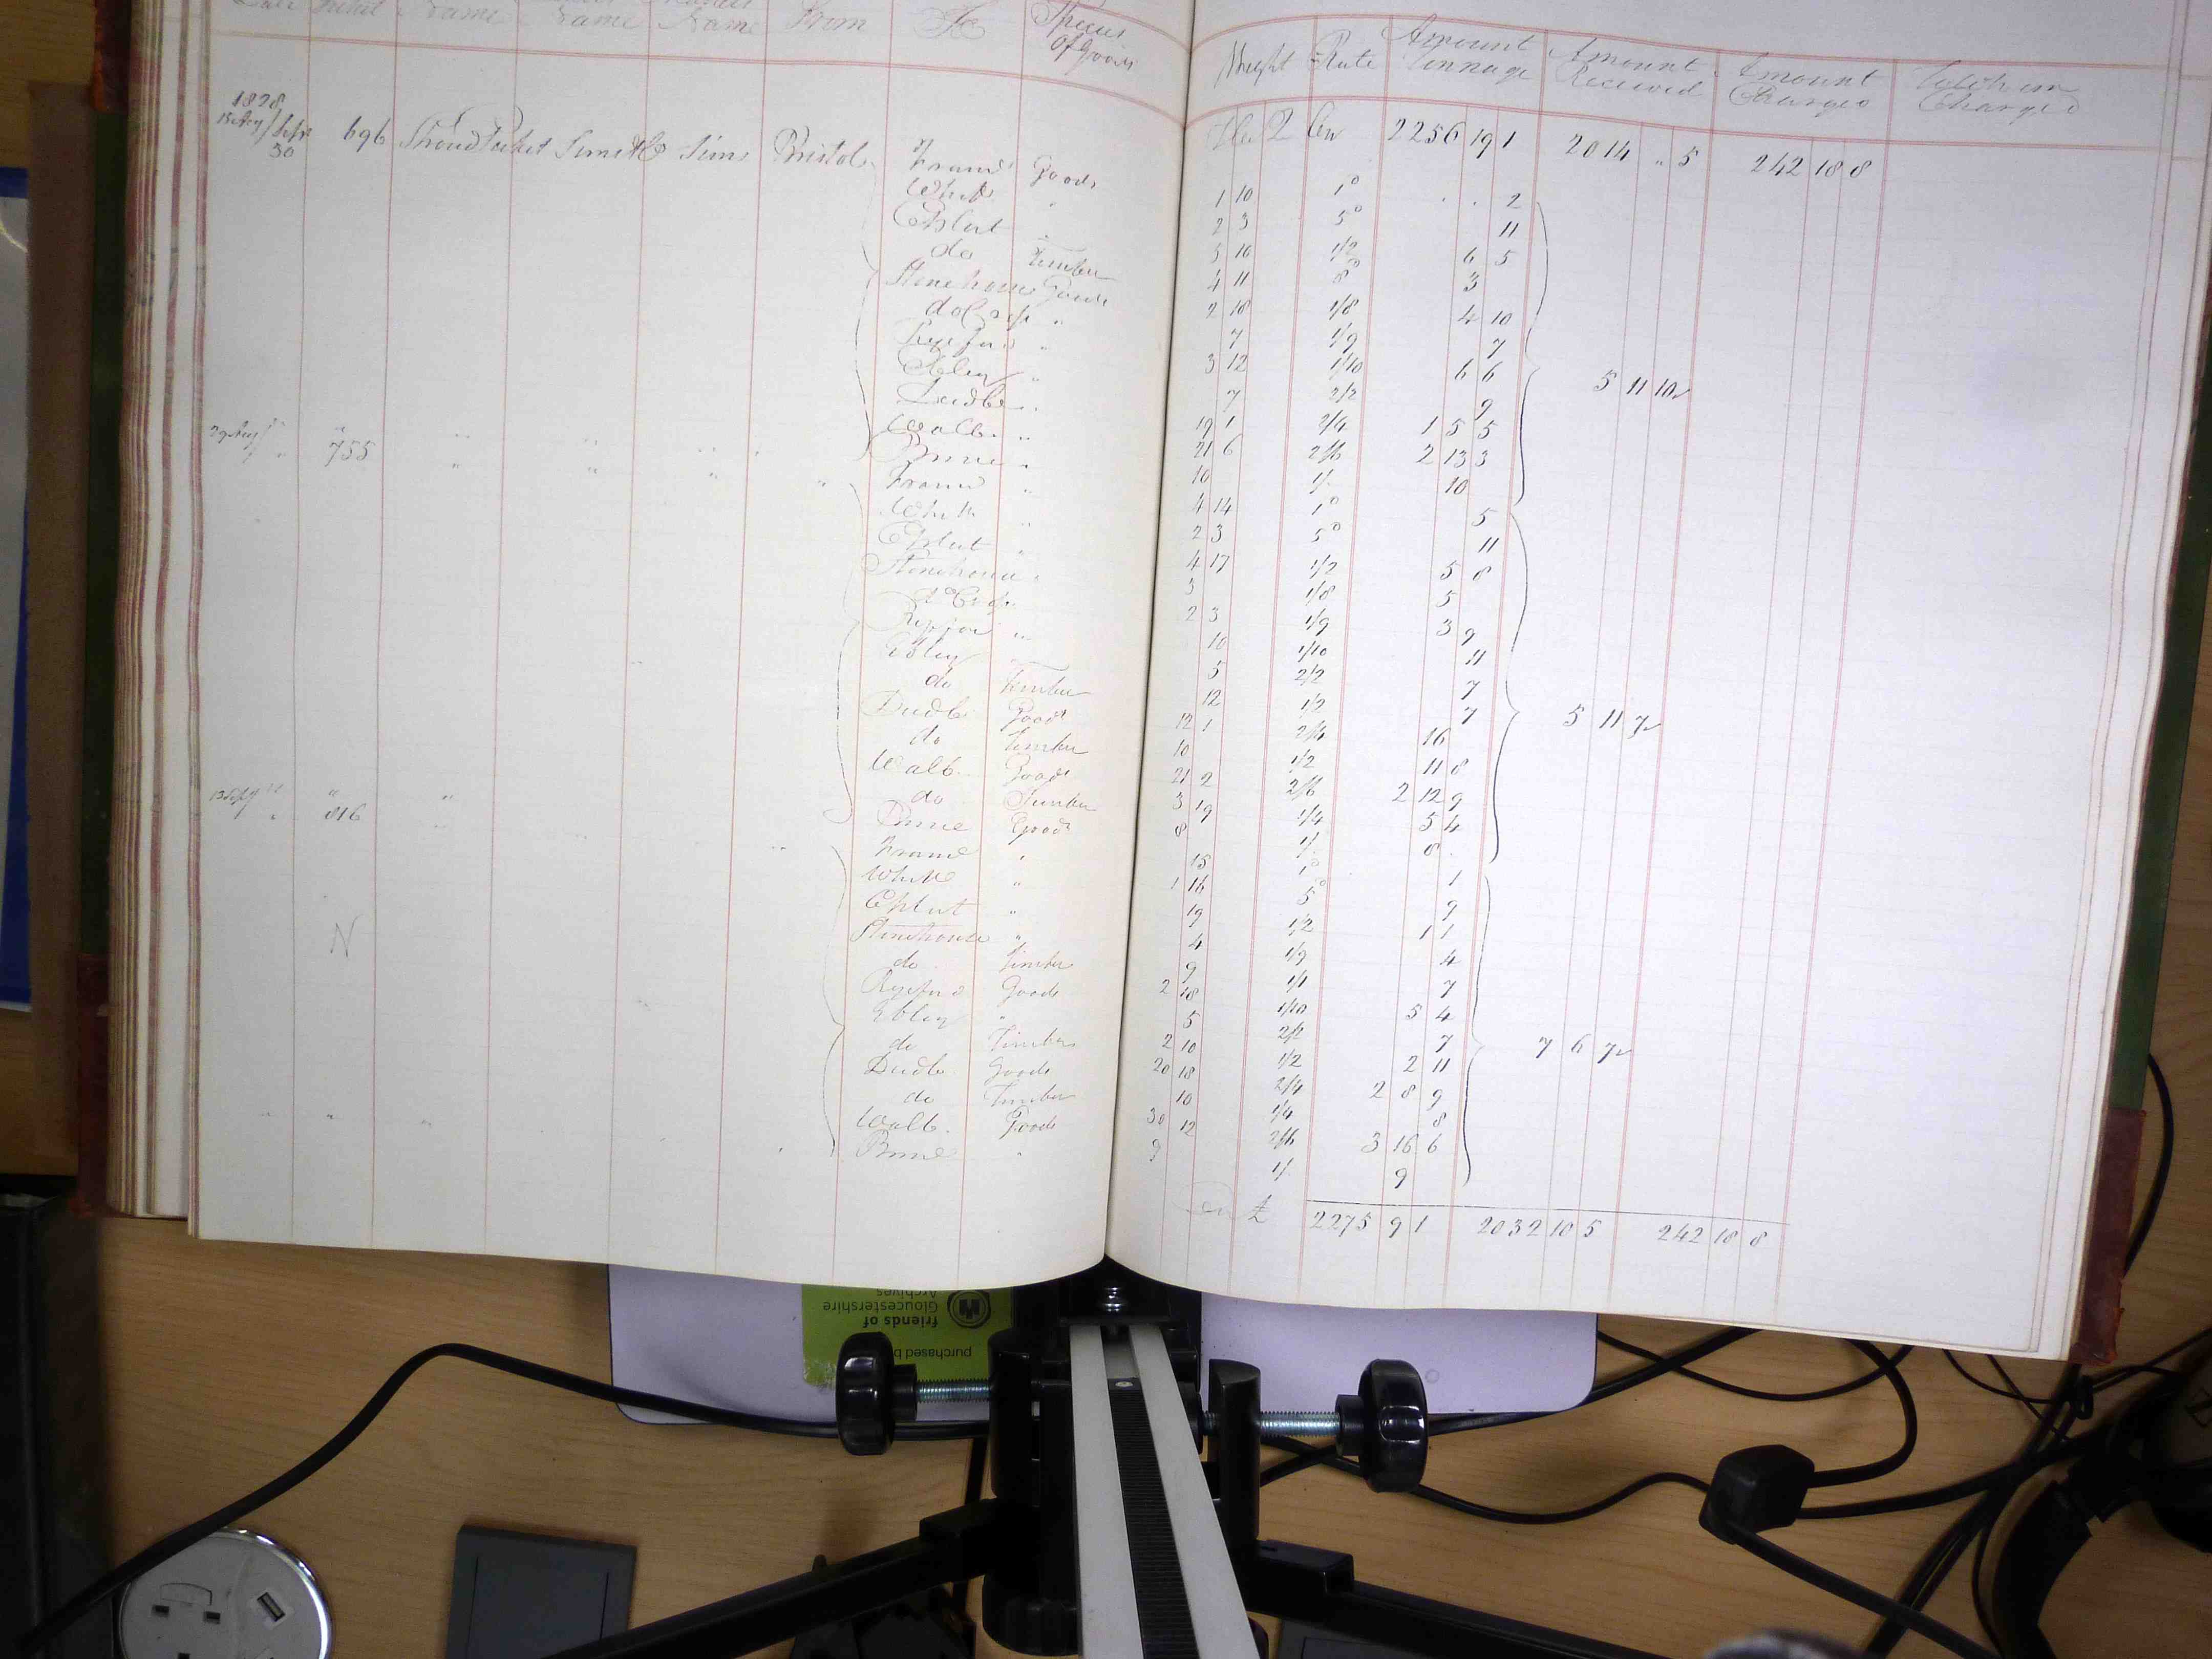 Date Ticket Name Name Name From To Species of Goods Weight Rate Amount Tonnage Amount Received Amount Charged
1828
15 Aug / Sepr 30 696 Stroud Packet Sims & Co Sims Bristol 2256 19 1 2014 " 5 242 18 8
Fram Goods 1 10 1d . . 2
Whit " 2 3 5d 11
Chslut " 5 10 1/2 6 5
do Timber 4 11 8d 3
Stonehouse Goods 2 18 1/8 4 10
do " 7 1/9 7
Ryeford " 3 12 1/10 6 6
Ebley " 7 2/2 9
Dudb. " 19 1 2/4 1 5 5
Walb. " 21 6 2/6 2 13 3
Brime " 10 1/. 10
5 11 10
29 Aug " 755 " " " "
Fram " 4 14 1d 5
Whit " 2 3 5d 11
Chslut " 4 17 1/2 5 8
Stonehouse " 3 1/8 5
do " 2 3 1/9 3 9
Ryford " 10 1/10 11
Ebley " 5 2/2 7
do Timber 12 1/2 7
Dudb. Goods 12 1 2/4 16
do Timber 10 1/2 11 8
Walb. Goods 21 2 2/6 2 12 9
do Timber 3 19 1/4 5 4
Brime Goods 8 1/. 8
5 11 7
13 Sept " 816 " "
Frame " 15 1d 1
White " 1 16 5d 9
Chslut " 19 1/2 1 1
Stonehouse " 4 1/9 4
do Timber 9 1/1 7
Ryeford Goods 2 18 1/10 5 4
Ebley " 5 2/2 7
do Timber 2 10 1/2 2 11
Dudb. Goods 20 18 2/4 2 8 9
do Timber 10 1/4 8
Walb. Goods 30 12 2/6 3 16 6
Brime " 9 1/. 9
7 6 7
N
£ 2275 9 1 2032 10 5 242 18 8
purchased b
friends of
Gloucestershire
Archives